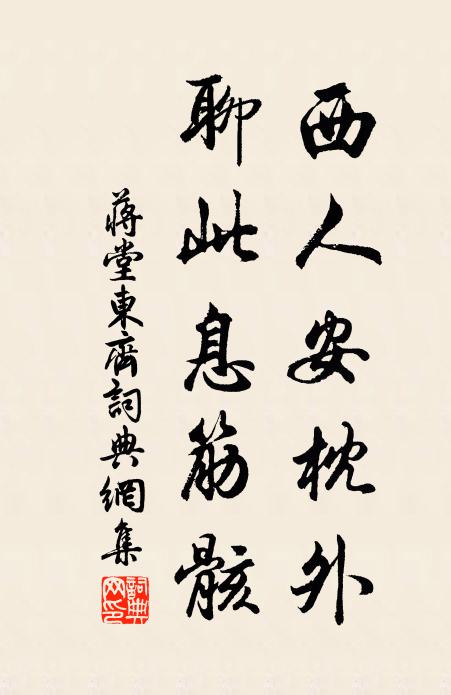 西人安枕外
聊此息筋骸
蔣堂東齋詞典網集
詞典网印